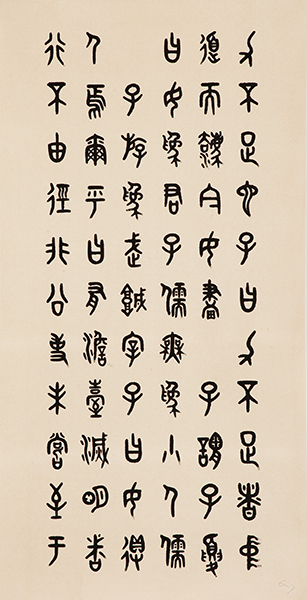 力不足也子曰力不足者中
道而廢今女畫　子謂子夏
曰女為君子儒無為小人儒
子游為武城宰子曰女得
人焉爾乎曰有澹臺滅明者
行不由徑非公事未嘗至于